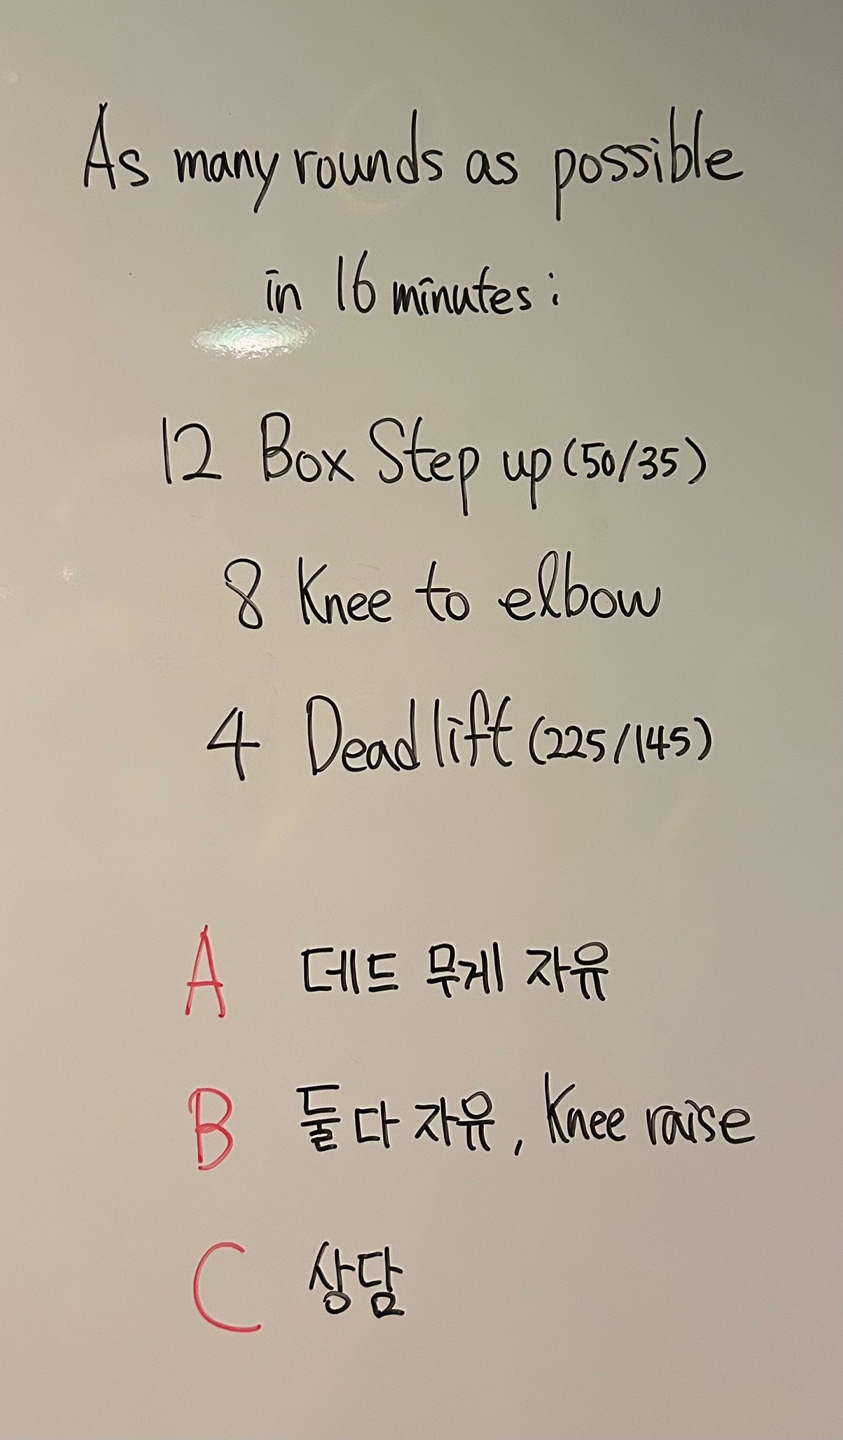 As many rounds as possible
in 16 minutes :
12 Box Step up (50/35)
8 Knee to elbow
4 Deadlift (225/145)
A 데드 무게 자유
B 둘다 자유, Knee raise
C 상담